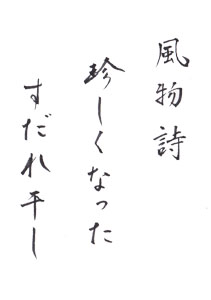 風物詩
珍しくなった
すだれ干し